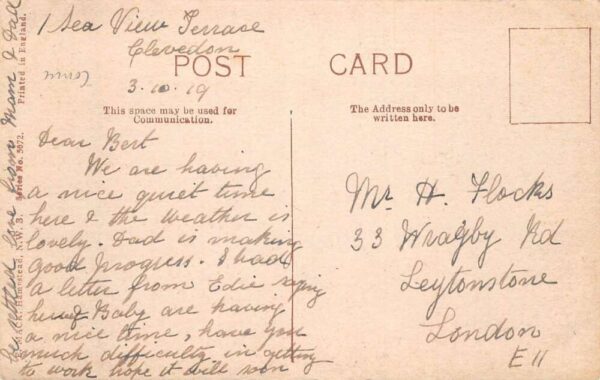 1 Sea View Terrace
Clevedon
3.10.19
POST CARD
This space may be used for
Communication.
The Address only to be
written here.
Dear Bert
We are having
a nice quiet time
here & the weather is
lovely. Dad is making
good progress. I had
a letter from Edie saying
her & Baby are having
a nice time, have you
much difficulty in getting
to work hope it will soon
be settled love from Mam & Dad
Mr H. Flocks
33 Wragby Rd
Leytonstone
London
E 11
Hampstead, N.W.3. Series No. 5072.
Printed in England.